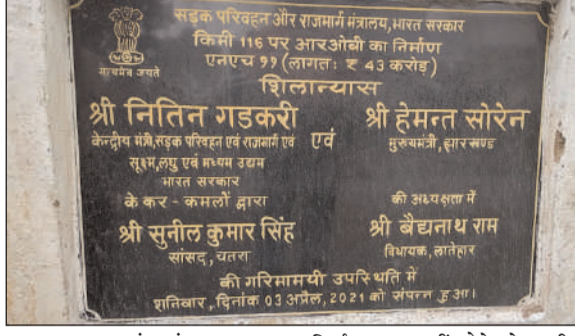 सड़क परिवहन और राजमार्ग मंत्रालय,भारत सरकार
किमी 116 पर आरओबी का निर्माण
एनएच ९९ (लागतः ₹ 43 करोड़)
सत्यमेव जयते
शिलान्यास
श्री नितिन गडकरी
केन्द्रीय मंत्री,सड़क परिवहन एवं राजमार्ग एवं
सूक्ष्म,लघु एवं मध्यम उद्यम
भारत सरकार
एवं
श्री हेमन्त सोरेन
मुख्यमंत्री,झारखण्ड
के कर - कमलों द्वारा
की अध्यक्षता में
श्री सुनील कुमार सिंह
सांसद, चतरा
श्री बैद्यनाथ राम
विधायक, लातेहार
की गरिमामयी उपस्थिति में
शनिवार,,दिनांक 03 अप्रैल, 2021 को संपन्न हुआ।